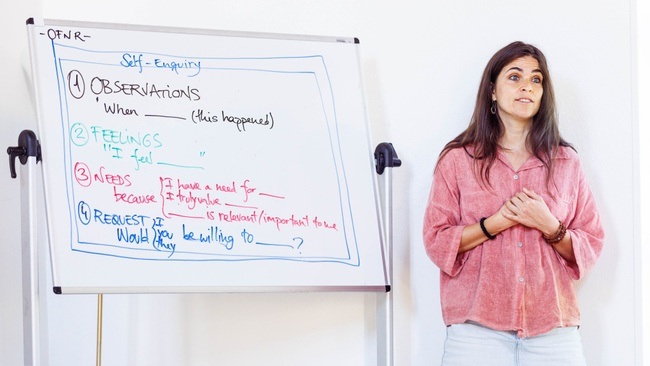 -OFNR-
Self-Enquiry
① OBSERVATIONS
"When ____ (this happened)
② FEELINGS
"I feel ____"
③ NEEDS
because { I have a need for ___
I truly value ___
____ is relevant/important to me
④ REQUEST
Would { I / you / they be willing to ____?